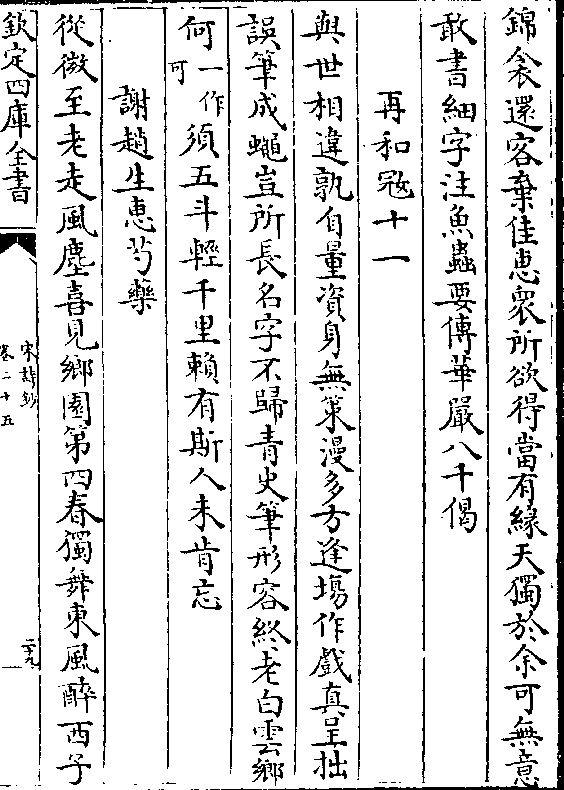 錦衾還客棄佳惠衆所欲得當有緣天獨於余可無意
敢書細字注魚蟲要傳華嚴八千偈
再和寇十一
與世相違孰自量資身無策漫多方逢塲作戲真呈拙
誤筆成蠅豈所長名字不歸青史筆形容終老白雲鄉
何一作可須五斗輕千里賴有斯人未肯忘
謝趙生惠芍藥
從微至老走風塵喜見鄉園第四春獨舞東風醉西子
欽定四庫全書
宋詩鈔
卷二十五
二十九